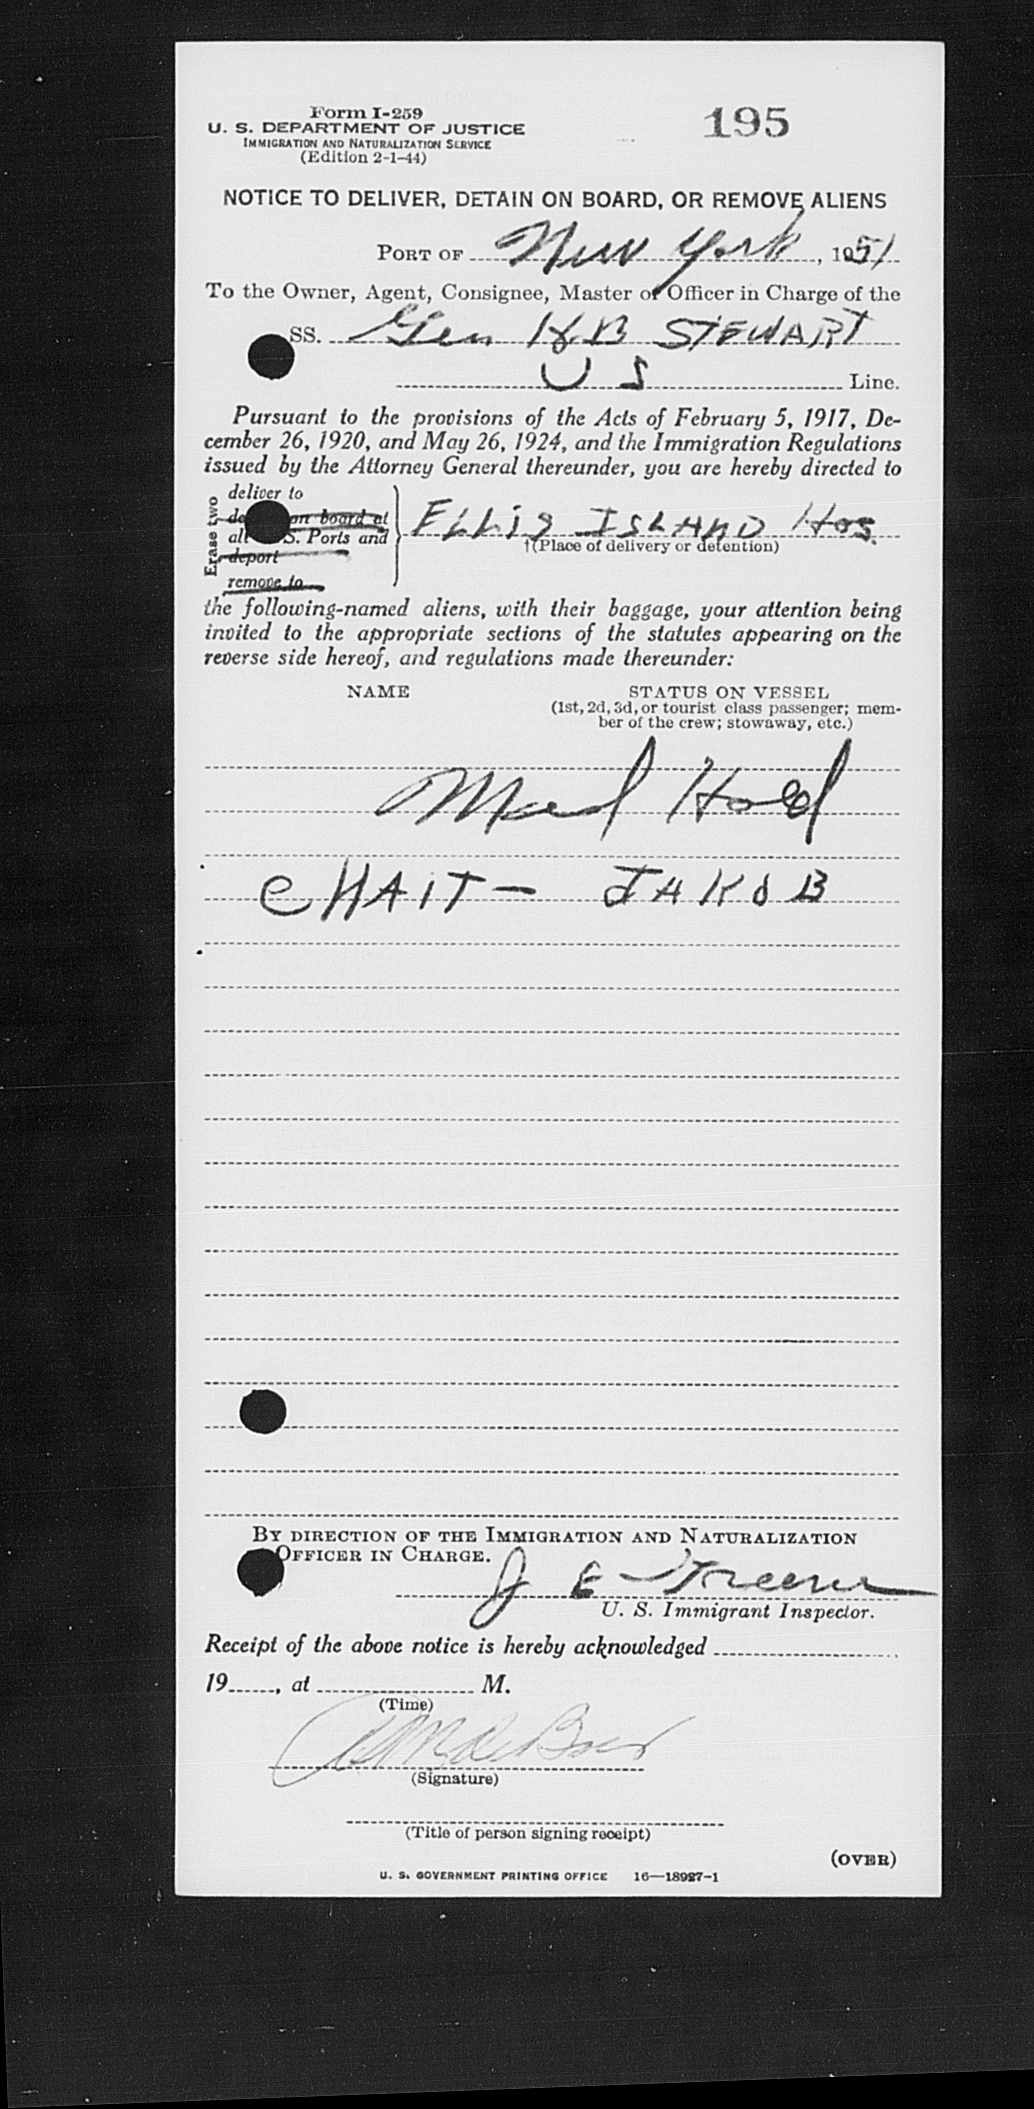 Form I-259
195
U. S. DEPARTMENT OF JUSTICE
IMMIGRATION AND NATURALIZATION SERVICE
(Edition 2-1-44)
NOTICE TO DELIVER, DETAIN ON BOARD, OR REMOVE ALIENS
PORT OF New York, 1951
To the Owner, Agent, Consignee, Master or Officer in Charge of the
SS. Gen HB STEWART
US Line.
Pursuant to the provisions of the Acts of February 5, 1917, De-
cember 26, 1920, and May 26, 1924, and the Immigration Regulations
issued by the Attorney General thereunder, you are hereby directed to
Erase two
deliver to
on board at
all S. Ports and
deport
remove to
ELLIS ISLAND Hos.
†(Place of delivery or detention)
the following-named aliens, with their baggage, your attention being
invited to the appropriate sections of the statutes appearing on the
reverse side hereof, and regulations made thereunder:
NAME STATUS ON VESSEL
(1st, 2d, 3d, or tourist class passenger; mem-
ber of the crew; stowaway, etc.)
Med Hold
CHAIT - JAKOB
BY DIRECTION OF THE IMMIGRATION AND NATURALIZATION
OFFICER IN CHARGE.
J E Greene
U. S. Immigrant Inspector.
Receipt of the above notice is hereby acknowledged
19, at M.
(Time)
(Signature)
(Title of person signing receipt)
(OVER)
U. S. GOVERNMENT PRINTING OFFICE 16—18927-1